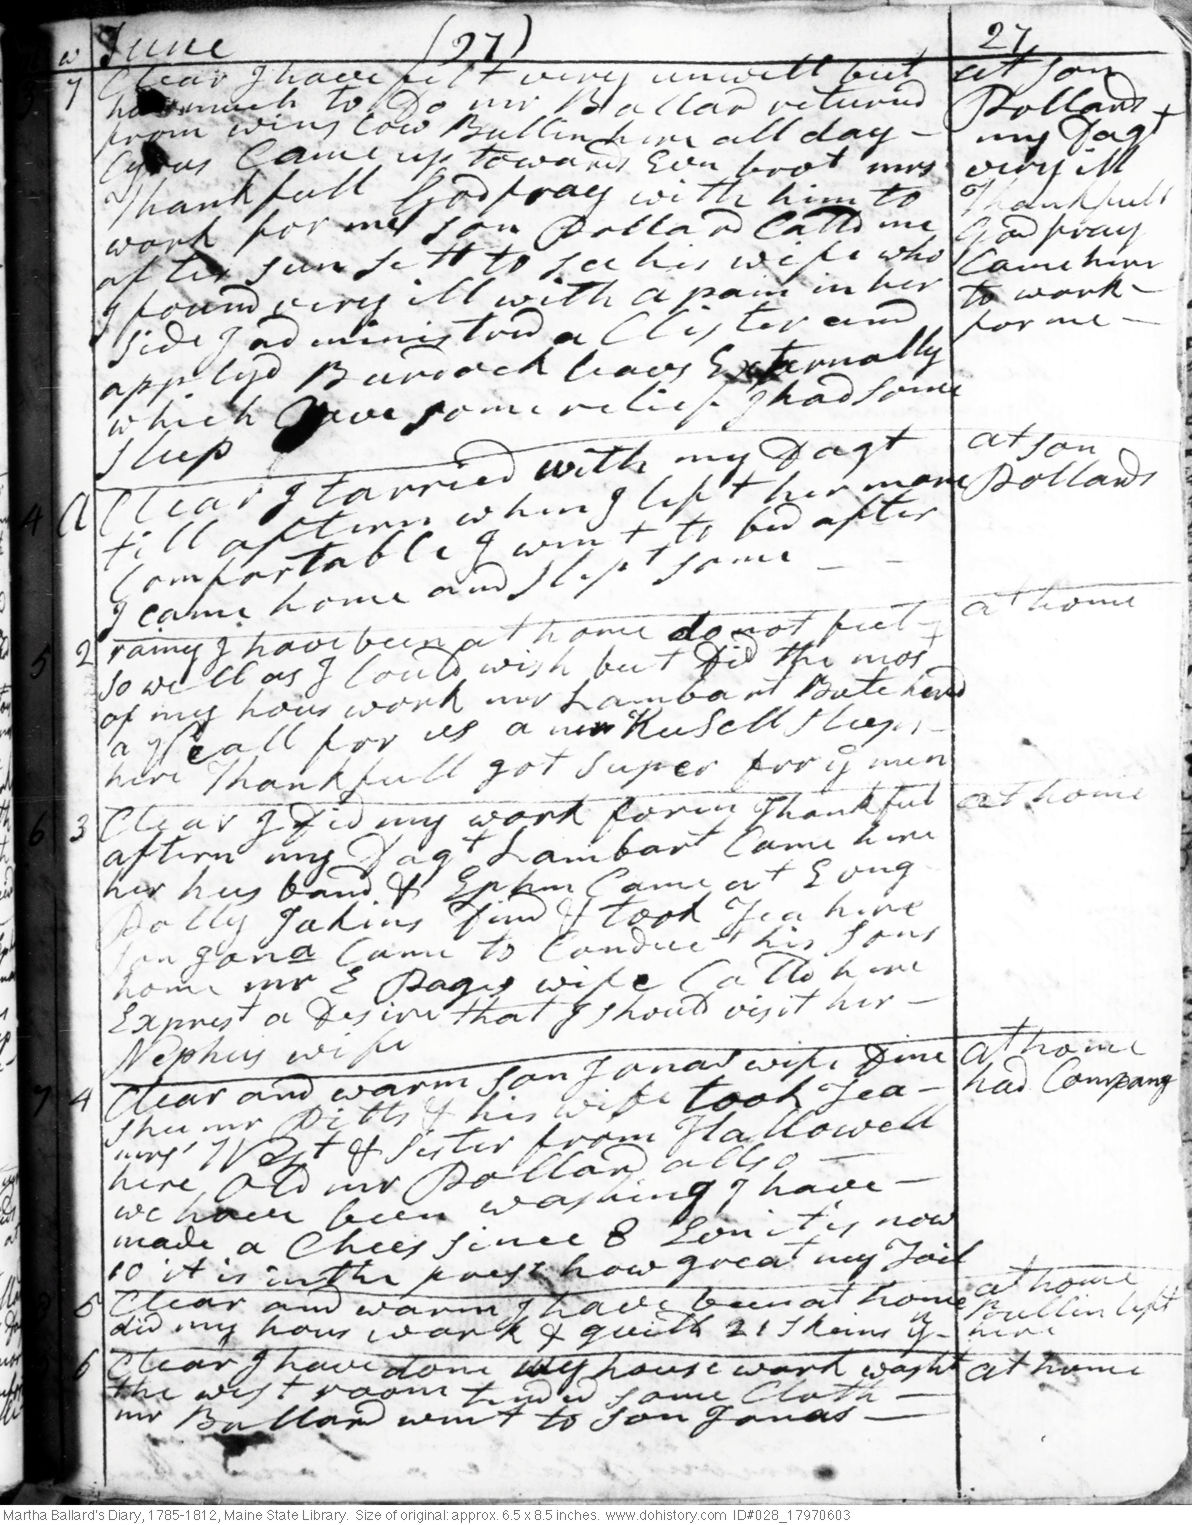 June (97) 27
3 7 Clear I have felt very unwell but
have much to Do mr Ballard returnd
from winslow Bullin here all day -
Cyrus Came up towards Evn brot mrs
Thankfull Godfray with him to
work for me son Pollard Calld me
after sun sett to see his wife who
I found very ill with a pain in her
side I administred a Clister and
applyd Burdock leavs Externally
which gave some relief I had some
sleep
at son
Pollards
my Dagt
very ill
Thankfull
Godfray
Came here
to work -
for me -
4 A Clear I tarried with my Dagt
till aftern when I left her more
Comfortable I went to bed after
I came home and slept some - -
at son
Pollards
5 2 rainy I have been at home do not feel
so well as I Could wish but Did the most
of my hous work mr Lambart Butcherd
a Calf for us a mr Russell sleeps
here Thankfull got super for ye men
at home
6 3 Clear I Did my work foren Thankful
aftern my Dagt Lambart Came here
her husband & Ephm Came at Evng
Polly Jakins Dind & took Tea here
son Jona Came to Conduct his sons
home mr E Pages wife Calld here
Exprest a Desire that I should visit her -
Nephus wife
at home
7 4 Clear and warm son Jonas wife Dine
shee mr Pitts & his wife took Tea -
mrs West & sister from Hallowell
here, Old mr Pollard allso -
we have been washing I have -
made a Chees since 8 Evn it is now
10 it is in the press how great my Toil
at home
had Company
5 Clear and warm I have been at home
did my hous work & 21 Skeins
at home
Bullin left
here
6 Clear I have done my house work washt
the west room tended some Cloth -
mr Ballard went to son Jonas -
at home
Martha Ballard's Diary, 1785-1812, Maine State Library. Size of original: approx. 6.5 x 8.5 inches. www.dohistory.com ID#028_17970603